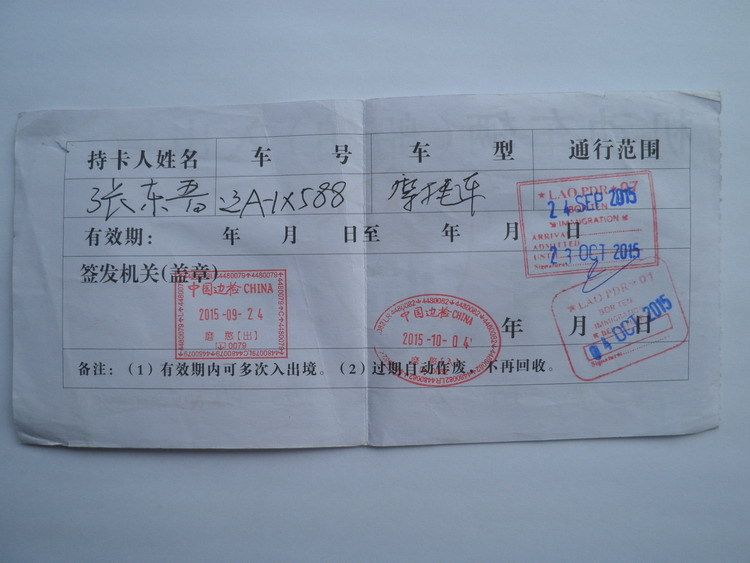 持卡人姓名 车 号 车 型 通行范围
张东晋 辽A-1X588 摩托车
★ LAO PDR ★ 07
BORTEN
IMMIGRATION
24 SEP 2015
ARRIVAL
ADMITTED
UNTIL
23 OCT 2015
Signature
有效期: 年 月 日至 年 月 日
签发机关(盖章)
中国边检 CHINA
2015-09-24
磨憨[出]
0079
中国边检 CHINA
2015-10-04
★ LAO PDR ★ 01
BORTEN
04 OCT 2015
Signature
年 月 日
备注:(1)有效期内可多次入出境。(2)过期自动作废,不再回收。